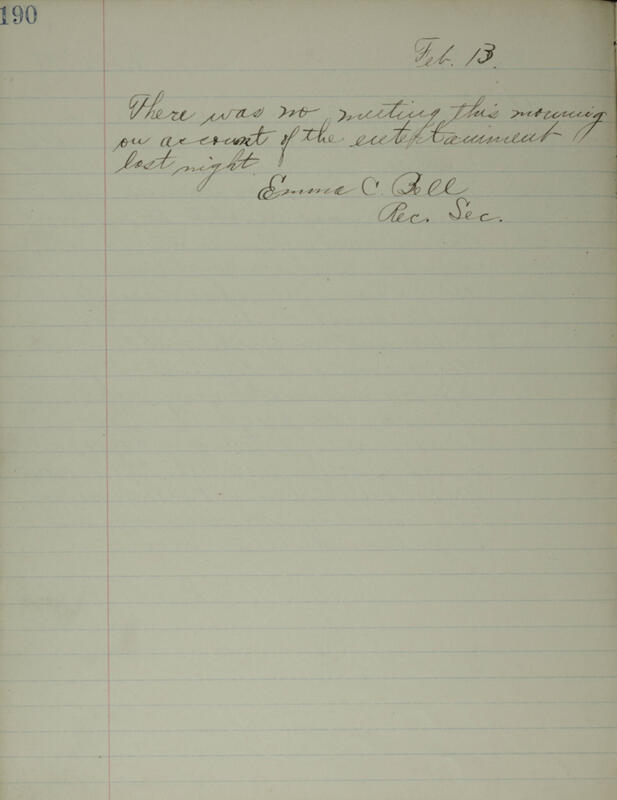 190
Feb. 13.
There was no meeting this morning
on account of the entertainment
last night.
Emma C. Bell
Rec. Sec.